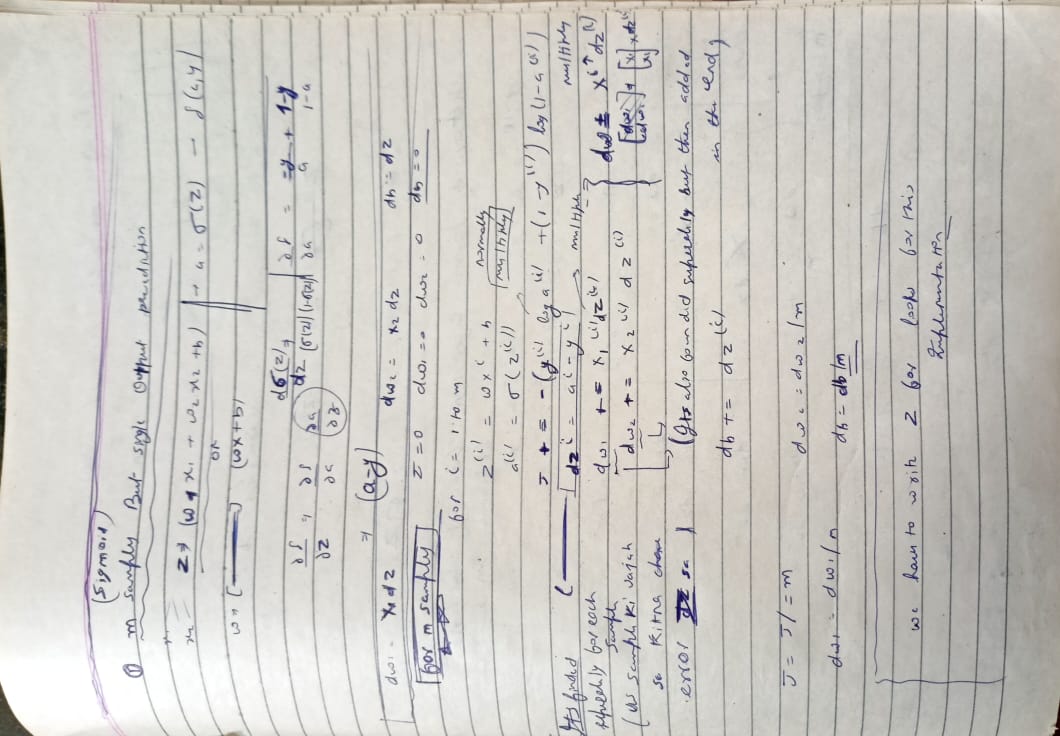 (Sigmoid)
① m samply But single Output prediction
x₁
x₂ z ⇒ (w₁x₁ + w₂x₂ + b) → a = σ(z) — δ(a,y)
or
w = [ ] (wx+b)
dσ(z)/dz = (σ(z))(1-σ(z)) ∂δ/∂a = -y/a + 1-y/1-a
∂δ/∂z = ∂δ/∂a ∂a/∂z
⇒ (a-y)
dw₁ = x₁dz dw₂ = x₂dz db = dz
for m samply J=0 dw₁=0 dw₂=0 db=0
for i = 1 to m
z⁽ⁱ⁾ = wxⁱ + b
normally
multiply
a⁽ⁱ⁾ = σ(z⁽ⁱ⁾)
J += -(y⁽ⁱ⁾ log a⁽ⁱ⁾ + (1-y⁽ⁱ⁾) log(1-a⁽ⁱ⁾)
dzⁱ = aⁱ - yⁱ
multiply
multiply
Its finded
seperetly for each
sample
(us sample ki vajah
se kitna
error dz
dw₁ += x₁⁽ⁱ⁾dz⁽ⁱ⁾
dw₂ += x₂⁽ⁱ⁾dz⁽ⁱ⁾
x⁽ⁱ⁾dz⁽ⁱ⁾
(Its also founded seperetly but then added
in the end)
db += dz⁽ⁱ⁾
J = J/=m
dw₂ = dw₂/m
dw₁ = dw₁/m
db = db/m
we have to write 2 for loops for this
Implementation